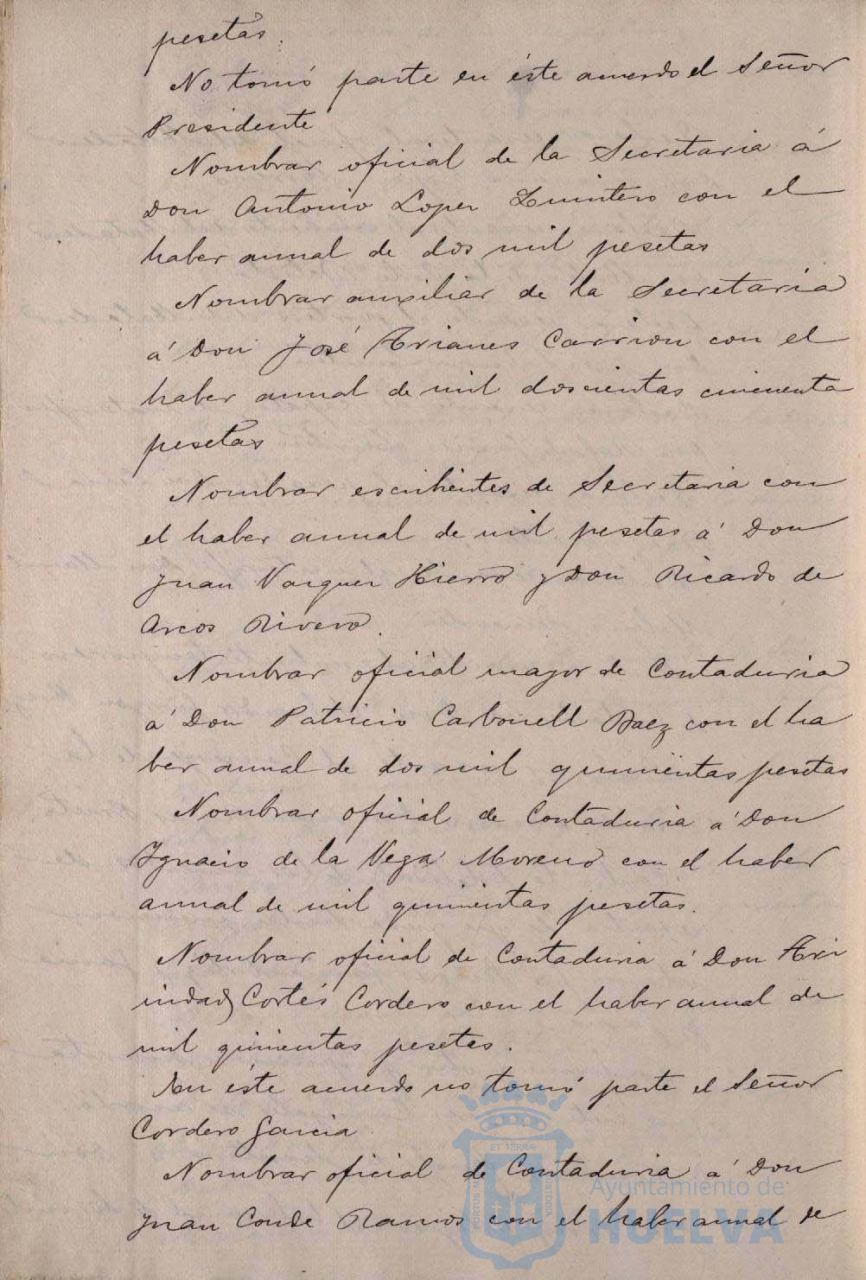 pesetas.
No tomó parte en éste acuerdo el Señor
Presidente
Nombrar oficial de la Secretaria á
Don Antonio Lopez Quintero con el
haber anual de dos mil pesetas
Nombrar auxiliar de la Secretaria
á Don José Trianes Carrion con el
haber anual de mil doscientas cincuenta
pesetas
Nombrar escribientes de Secretaria con
el haber anual de mil pesetas á Don
Juan Vazquez Hierro y Don Ricardo de
Arcos Rivero.
Nombrar oficial mayor de Contaduria
á Don Patricio Carbonell Baez con el ha
ber anual de dos mil quinientas pesetas
Nombrar oficial de Contaduria á Don
Ygnacio de la Vega Moreno con el haber
anual de mil quinientas pesetas.
Nombrar oficial de Contaduria á Don Tri
nidad Cortés Cordero con el haber anual de
mil quinientas pesetas.
En éste acuerdo no tomó parte el Señor
Cordero Garcia
Nombrar oficial de Contaduria á Don
Juan Conde Ramos con el haber anual de
Ayuntamiento de
HUELVA